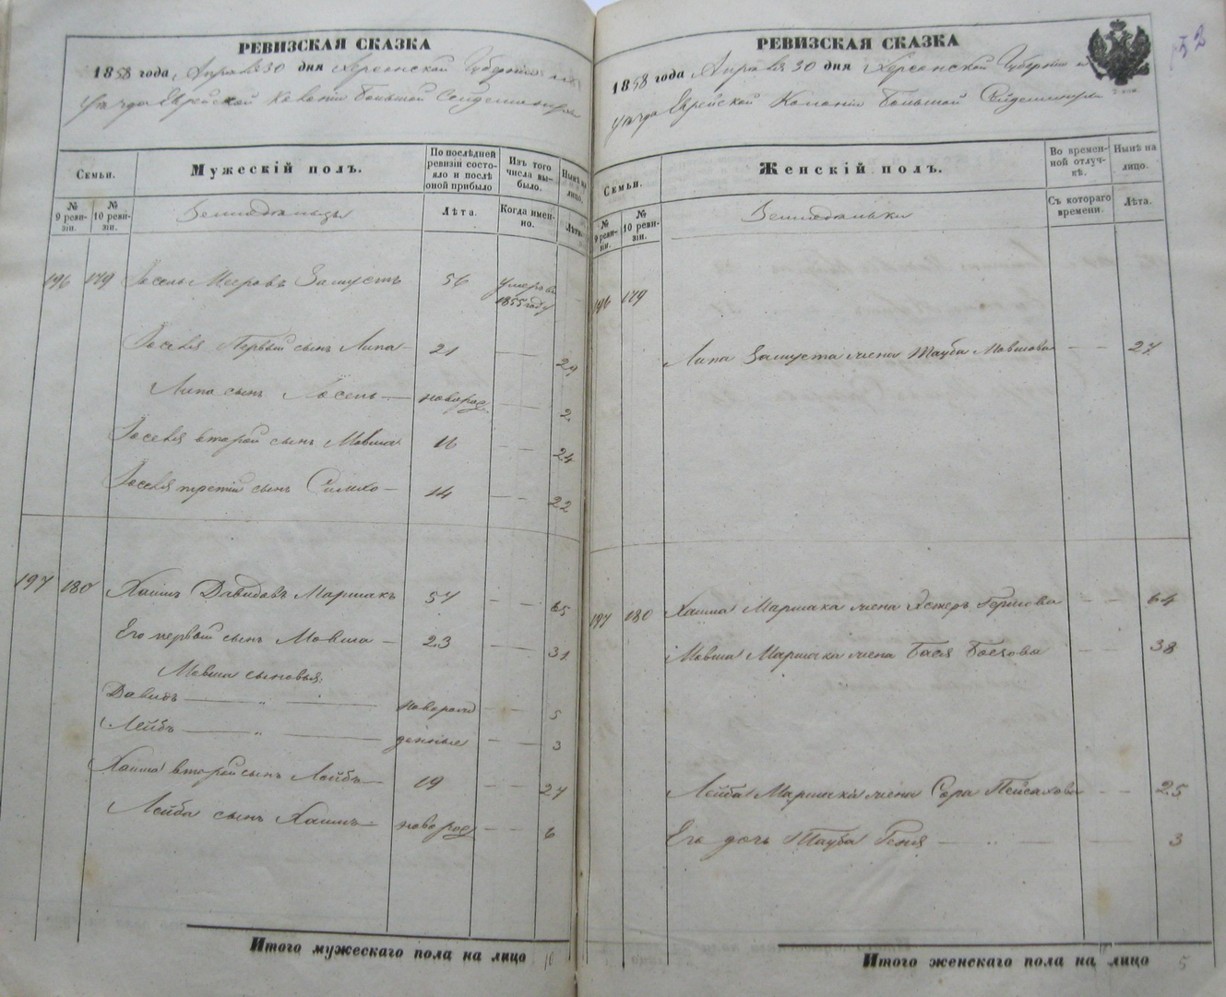 РЕВИЗСКАЯ СКАЗКА
1858 года Апреля 30 дня Херсонской Губернии и
уезда Еврейской Колонии Большой Сейдеминухи
Семьи.
Мужескій полъ.
По послѣдней ревизіи состояло и послѣ оной прибыло
Изъ того числа выбыло.
Нынѣ на лицо.
№ 9 ревизіи.
№ 10 ревизіи.
Земледельцы
Лѣта.
Когда именно.
Лѣта.
196 179 Іосель Мееровъ Замустъ 56 умеръ въ 1855 году
Іоселя Первый сынъ Липа 21 — — 29
Липа сынъ Іосель — новорож. — — 2
Іоселя второй сынъ Мовша 16 — — 24
Іоселя третій сынъ Симхо — 14 — — 22
197 180 Хаимъ Давидовъ Маршакъ 57 65
Его первый сынъ Мовша — 23 — — 31
Мовши сыновья,
Давидъ — „ — новорож — — 5
Лейбъ — „ — денные — — 3
Хаима второй сынъ Лейбъ — 19 — — 27
Лейба сынъ Хаимъ — новорож — — 6
Итого мужескаго пола на лицо 10
52
РЕВИЗСКАЯ СКАЗКА
1858 года Апреля 30 дня Херсонской Губерніи и
уезда Еврейской Колоніи Большой Сейдеминухи
Семьи.
Женскій полъ.
Во временной отлучкѣ.
Нынѣ на лицо.
№ 9 ревизіи.
№ 10 ревизіи.
Земледельки
Съ котораго времени.
Лѣта.
196 179
Липа Замуста жена Тауба Мовшова — — 27
197 180 Хаима Маршака жена Эстеръ Гершова — — 64
Мовша Маршака жена Бася — — 38
Лейба Маршака жена Сора Пейсахова — — 25
Его дочь Тауба Геня — „ — 3
Итого женскаго пола на лицо 5